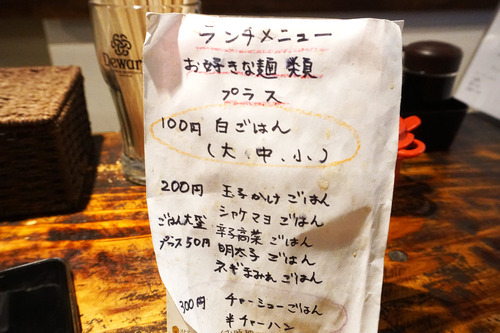 Dewar
ランチメニュー
お好きな麺類
プラス
100円 白ごはん
(大、中、小)
200円 玉子かけごはん
シャケマヨごはん
ごはん大盛 辛子高菜ごはん
プラス50円 明太子ごはん
ネギまみれごはん
300円 チャーシューごはん
半チャーハン